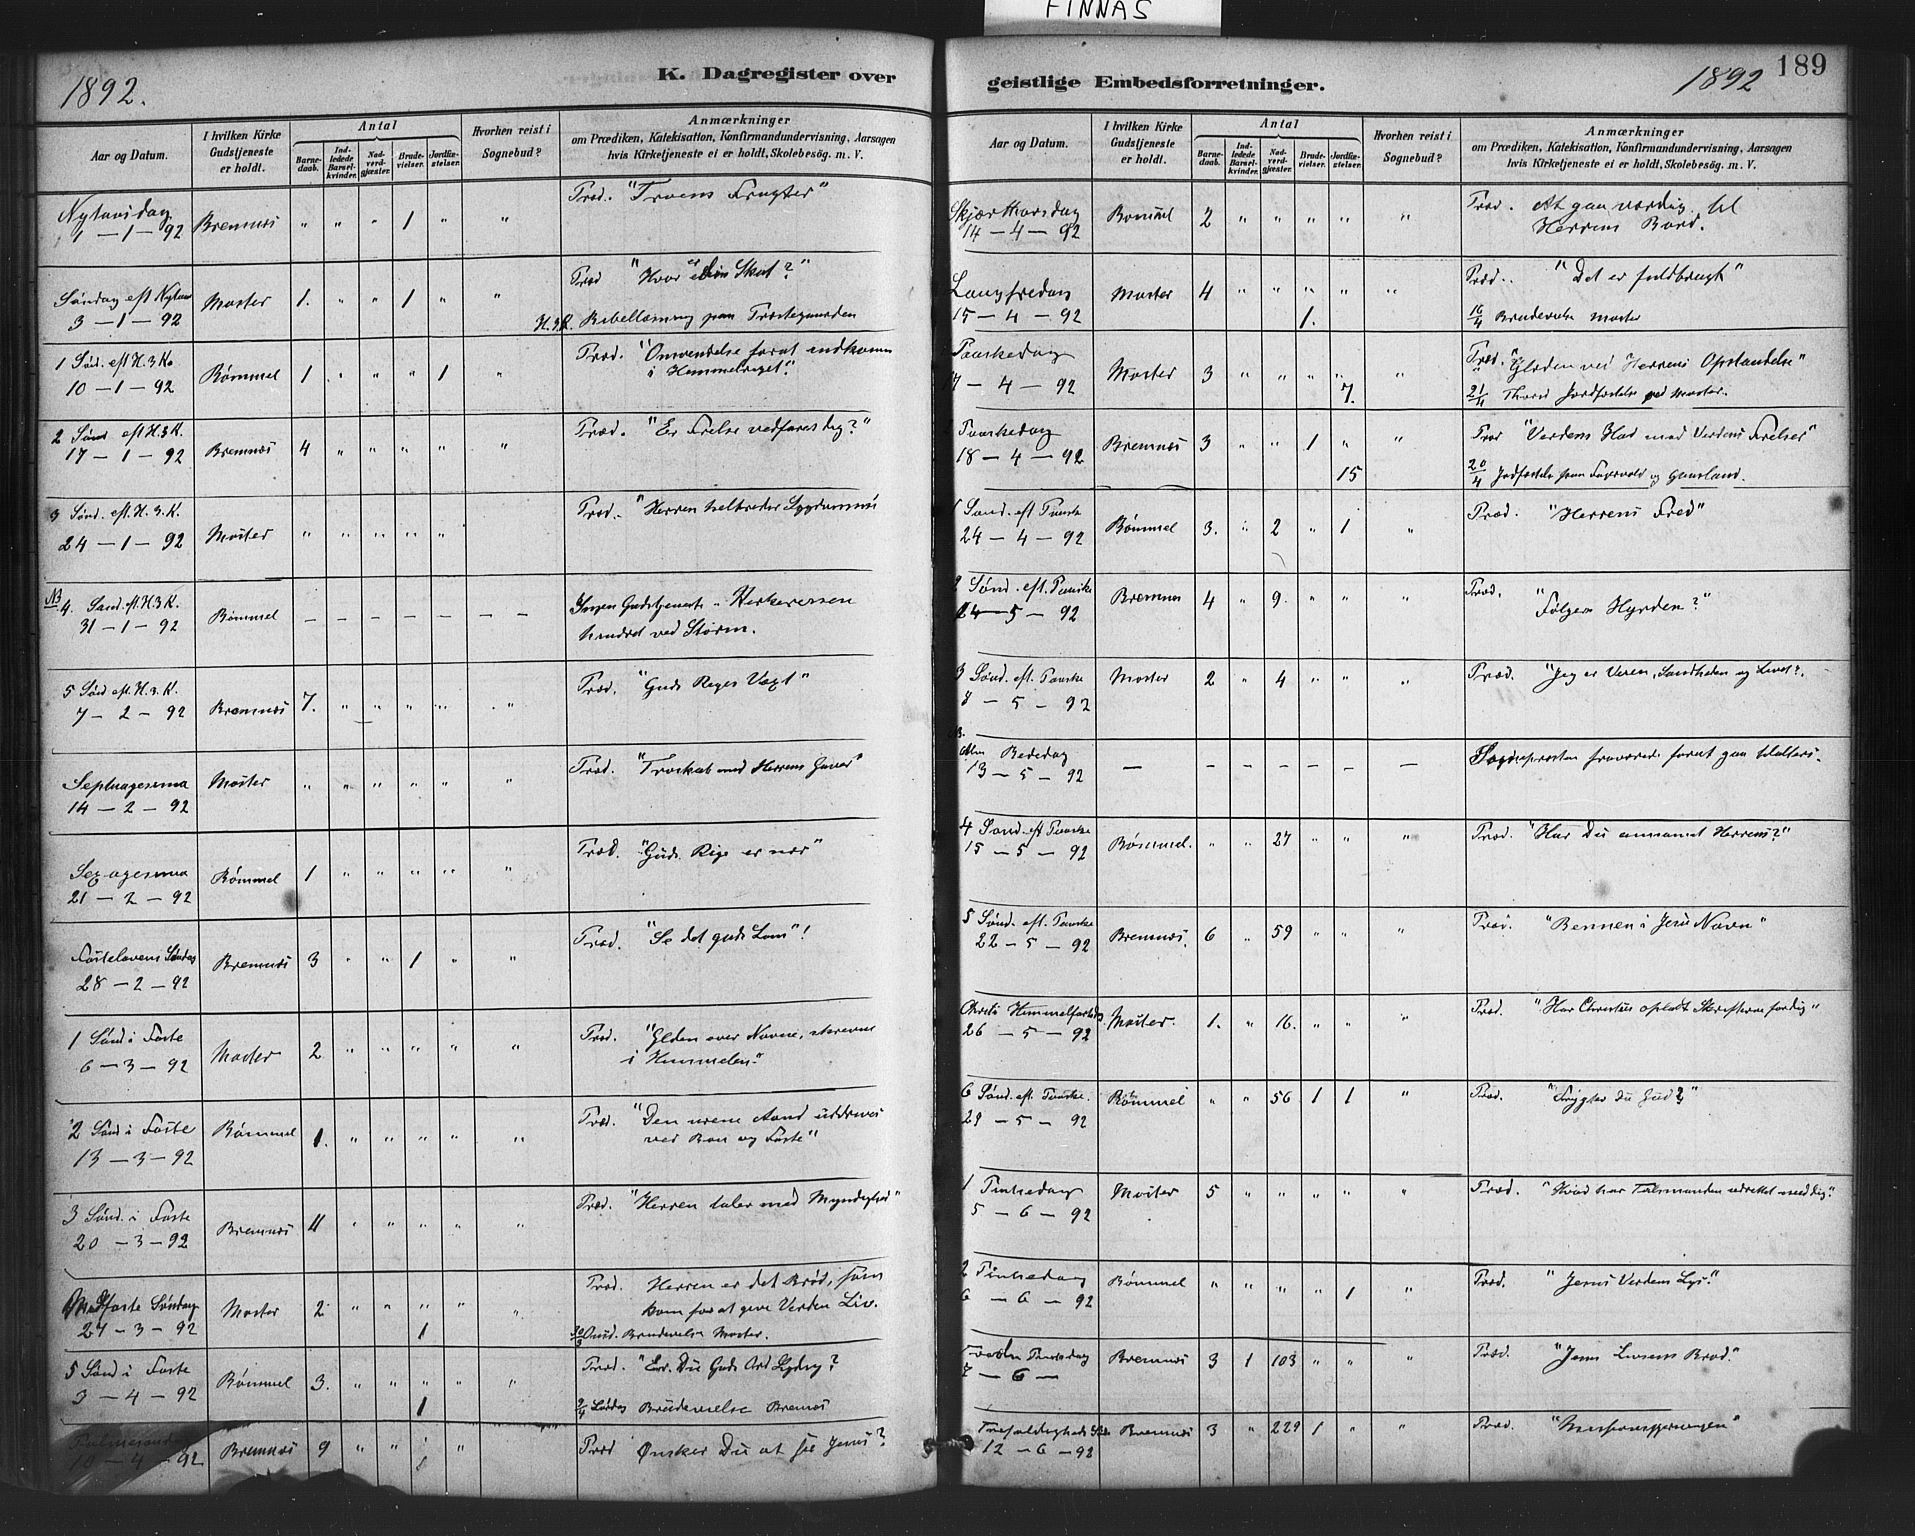 FINNAS
1892.
K. Dagregister over
Aar og Datum.
I hvilken Kirke Gudstjeneste er holdt.
Antal
Barnedaab.
Indledede Barselkvinder.
Nadverdgjæster.
Brudevielser.
Jordfæstelser.
Hvorhen reist i Sognebud?
Anmærkninger
om Prædiken, Katekisation, Konfirmandundervisning, Aarsagen
hvis Kirketjeneste ei er holdt, Skolebesøg. m. V.
Nytaarsdag 1 - 1 - 92 Bremnæs " " " 1 " " Præd. "Troens Frugter"
Søndag eft Nytaar 3 - 1 - 92 Moster 1. " " 1 " " Præd "Hvor er din Skat?"
H.3.K. Bibellæsning paa Præstegaarden
1 Sønd. eft H. 3 K. 10 - 1 - 92 Bømmel 1 " " " 1 " Præd. "Omvendelse forat indkomme
i Himmeriget."
2 Sønd eft H. 3 K. 17 - 1 - 92 Bremnæs 4 " " " " " Præd. "Er Frelse vedfaret dig?"
3 Sønd. eft. H. 3. K. 24 - 1 - 92 Moster " " " " " Præd. "Herren helbreder Sygdommes
NB 4. Sønd. eft. H 3 K. 31 - 1 - 92 Bømmel - - - - - - - Ingen Gudstjeneste. Kirkereisen
hindret ved Storm.
5 Sønd eft. H. 3. K. 7 - 2 - 92 Bremnæs 7. " " " " " Præd. "Guds Riges Væxt"
Septuagesima 14 - 2 - 92 Moster " " " " " " Præd. "Troskab med Herrens Gaver"
Sexagesima 21 - 2 - 92 Bømmel 1 " " " " " Præd. "Guds Rige er nær"
Fastelavens Søndag 28 - 2 - 92 Bremnæs 3 " " 1 " " Præd. "Se det Guds Lam"!
1 Sønd i Faste 6 - 3 - 92 Moster 2 " " " " " Præd. "Glæden over Navne, skrevne
i Himmelen."
2 Sønd i Faste 13 - 3 - 92 Bømmel 1. " " " " " Præd. "Den urene Aand uddrives
ved Bøn og Faste"
3 Sønd. i Faste 20 - 3 - 92 Bremnæs 4 " " " " " Præd. "Herren taler med Myndighed"
Midfaste Søndag 27 - 3 - 92 Moster 2 " " " " " Præd. Herren er det Brød, som
kom for at give Verden Liv.
1 30/3 Onsd. Brudevielse Moster.
5 Sønd i Faste 3 - 4 - 92 Bømmel 3. " " " " " Præd. "Er Du Guds Ord Lydig?
1 2/4 Lørdag Brudevielse Bremnæs
Palmesøndag 10 - 4 - 92 Bremnæs 9 " " " " " Præd Ønsker Du at se Jesus?
geistlige Embedsforretninger.
1892 189
Aar og Datum.
I hvilken Kirke Gudstjeneste er holdt.
Antal
Barnedaab.
Indledede Barselkvinder.
Nadverdgjæster.
Brudevielser.
Jordfæstelser.
Hvorhen reist i Sognebud?
Anmærkninger
om Prædiken, Katekisation, Konfirmandundervisning, Aarsagen
hvis Kirketjeneste ei er holdt, Skolebesøg. m. V.
Skjærthorsdag 14 - 4 - 92 Bømmel 2 " " " " " Præd. At gaa værdig til
Herrens Bord.
Langfredag 15 - 4 - 92 Moster 4 " " " " " Præd. "Det er fuldbragt"
1. 16/4 Brudevielse Moster
Paaskedag 17 - 4 - 92 Moster 3 " " " " " Præd. "Glæden ved Herrens Opstandelse"
7. 21/4 Thorsd Jordfæstelse ved Moster.
Paaskedag 18 - 4 - 92 Bremnæs 3 " " 1 " " Præd "Verdens Had mod Verdens Frelser"
15 20/4 Jordfæstelse paa og
1 Sønd. eft Paaske 24 - 4 - 92 Bømmel 3. " 2 " 1 " Præd. "Herrens Fred"
2 Sønd. eft. Paaske - 5 - 92 Bremnæs 4 " 9. " " " Præd. "Følger Hyrden?"
3 Sønd. eft. Paaske 8 - 5 - 92 Moster 2 " 4 " " " Præd. "Jeg er Veien, Sandheden og Livet".
Alm Bededag 13 - 5 - 92 - - - - - - - Sognepræsten fraværende forat gaa tilalters.
4 Sønd. eft Paaske 15 - 5 - 92 Bømmel. " " 27 " " " Præd. "Har Du annamet Herren?"
5 Sønd. eft. Paaske 22 - 5 - 92 Bremnæs. 6 " 59 " " " Præd. "Bønnen i Jesu Navn"
Christi Himmelfartsdag 26 - 5 - 92 Moster. 1. " 16. " " " Præd. "Har Christus opladt Skrifterne for dig"
6 Sønd. eft. Paaske. 29 - 5 - 92 Bømmel " " 56 1 1 " Præd. "Frygter Du Gud?"
1 Pintsedag 5 - 6 - 92 Moster 5 " " " " " Præd. "Hvad har Talsmanden udrettet med dig".
2 Pintsedag 6 - 6 - 92 Bømmel " " " " 1 " Præd. "Jesus Verdens Lys."
Tirsdag 7 - 6 - Bremnæs 3 1 103 " " " Præd. "Jesus Livsens Brød."
Trefoldigheds Sønd 12 - 6 - 92 Bremnæs 3 " 229 1 " " Præd. "Missionsgjerningen"